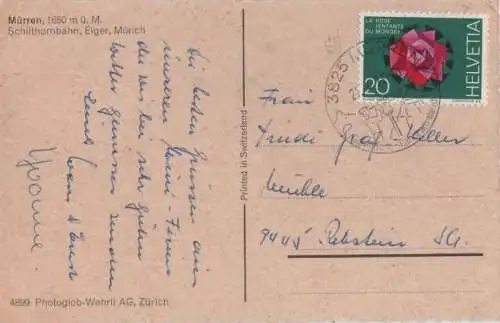 Mürren, 1650 m ü. M.
Schilthornbahn, Eiger, Mönch
Die besten Grüsse aus
unseren Mini-Ferien
die wir bei sehr gutem
Wetter geniessen
Yvonne
4899 Photoglob-Wehrli AG, Zürich
Printed in Switzerland
LA ROSE
L'ENFANTS
DU MONDE
20
HELVETIA
3825
Frau
Trudi Graf
Mühle
9445 Rebstein SG.